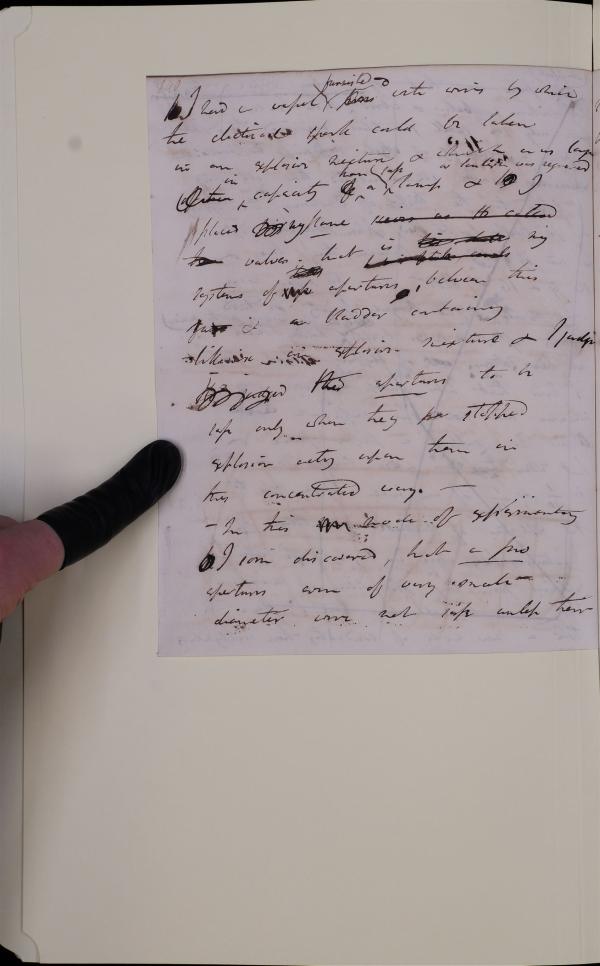 I had a vessel furnished with wires by which
the electrical spark could be taken
in an explosive mixture & which was as large
in capacity than a lamp or lanthorn was required
I placed my
valves, that is my
systems of apertures, between this
& a bladder containing
likewise explosive mixture & I judged
the apertures to be
safe only when they stopped
explosion acting upon them in
this concentrated way. —
– In this mode of experimenting
I soon discovered, that a few
apertures even of very small
diameter were not safe unless their